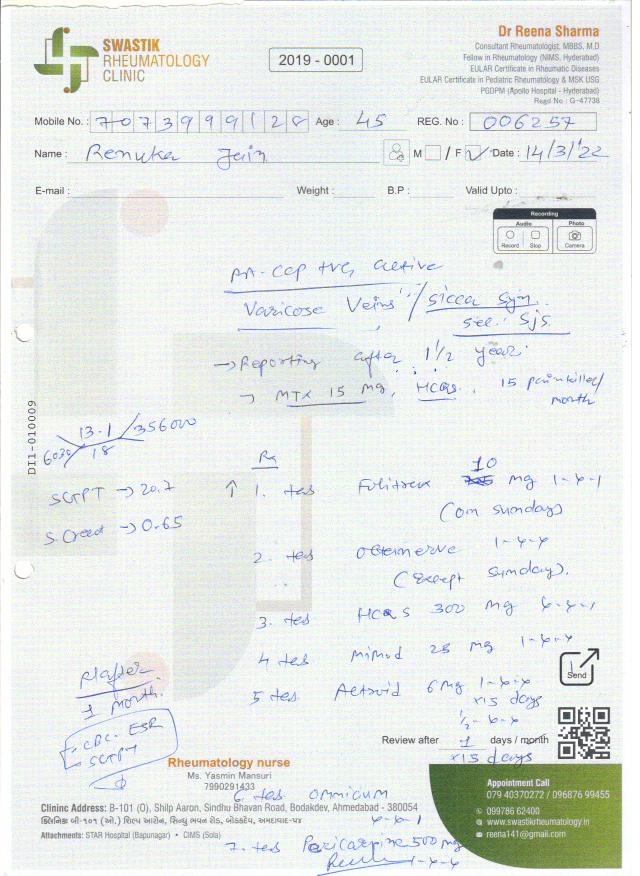 SWASTIK
RHEUMATOLOGY
CLINIC
2019 - 0001
Dr Reena Sharma
Consultant Rheumatologist, MBBS, M.D
Fellow in Rheumatology (NIMS, Hyderabad)
EULAR Certificate in Rheumatic Diseases
EULAR Certificate in Pediatric Rheumatology & MSK USG
PGDPM (Apollo Hospital - Hyderabad)
Regd No : G-47738
Mobile No. : 7073999128 Age : 45 REG. No : 006257
Name : Renuka Jain M / F ✓ Date : 14/3/'22
E-mail : Weight : B.P : Valid Upto :
Recording
Audio Photo
Record Stop Camera
RA-CCP +ve, active
Varicose Veins / Sicca Sym.
sec. SjS
→ Reporting after 1 1/2 year.
→ MTX 15 mg, HCQS, 15 painkiller/
month
DI1-010009
6030 13.1/18 356000
SGPT → 20.7
S. Creat → 0.65
Rx
↑ 1. tab Folitrax 10 mg 1-x-1
(on sunday)
2. tab 1-x-x
(Except Sunday).
3. tab HCQS 300 mg x-x-1
4 tab 25 mg 1-x-x
5 tab 6 mg 1-x-x
x15 days
1/2-x-x
x15 days
Send
R/after
1 month.
- CBC - ESR
- SGPT
Review after 1 days / month
Rheumatology nurse
Ms. Yasmin Mansuri
7990291433
6. tab Omnicium
x-x-1
7. tab 500 mg
1-x-x
Clininc Address: B-101 (O), Shilp Aaron, Sindhu Bhavan Road, Bodakdev, Ahmedabad - 380054
ક્લિનિક: બી-૧૦૧ (ઓ.) શિલ્પ આરોન, સિંધુ ભવન રોડ, બોડકદેવ, અમદાવાદ-૫૪
Attachments: STAR Hospital (Bapunagar) • CIMS (Sola)
Appointment Call
079 40370272 / 096876 99455
099786 62400
www.swastikrheumatology.in
reena141@gmail.com